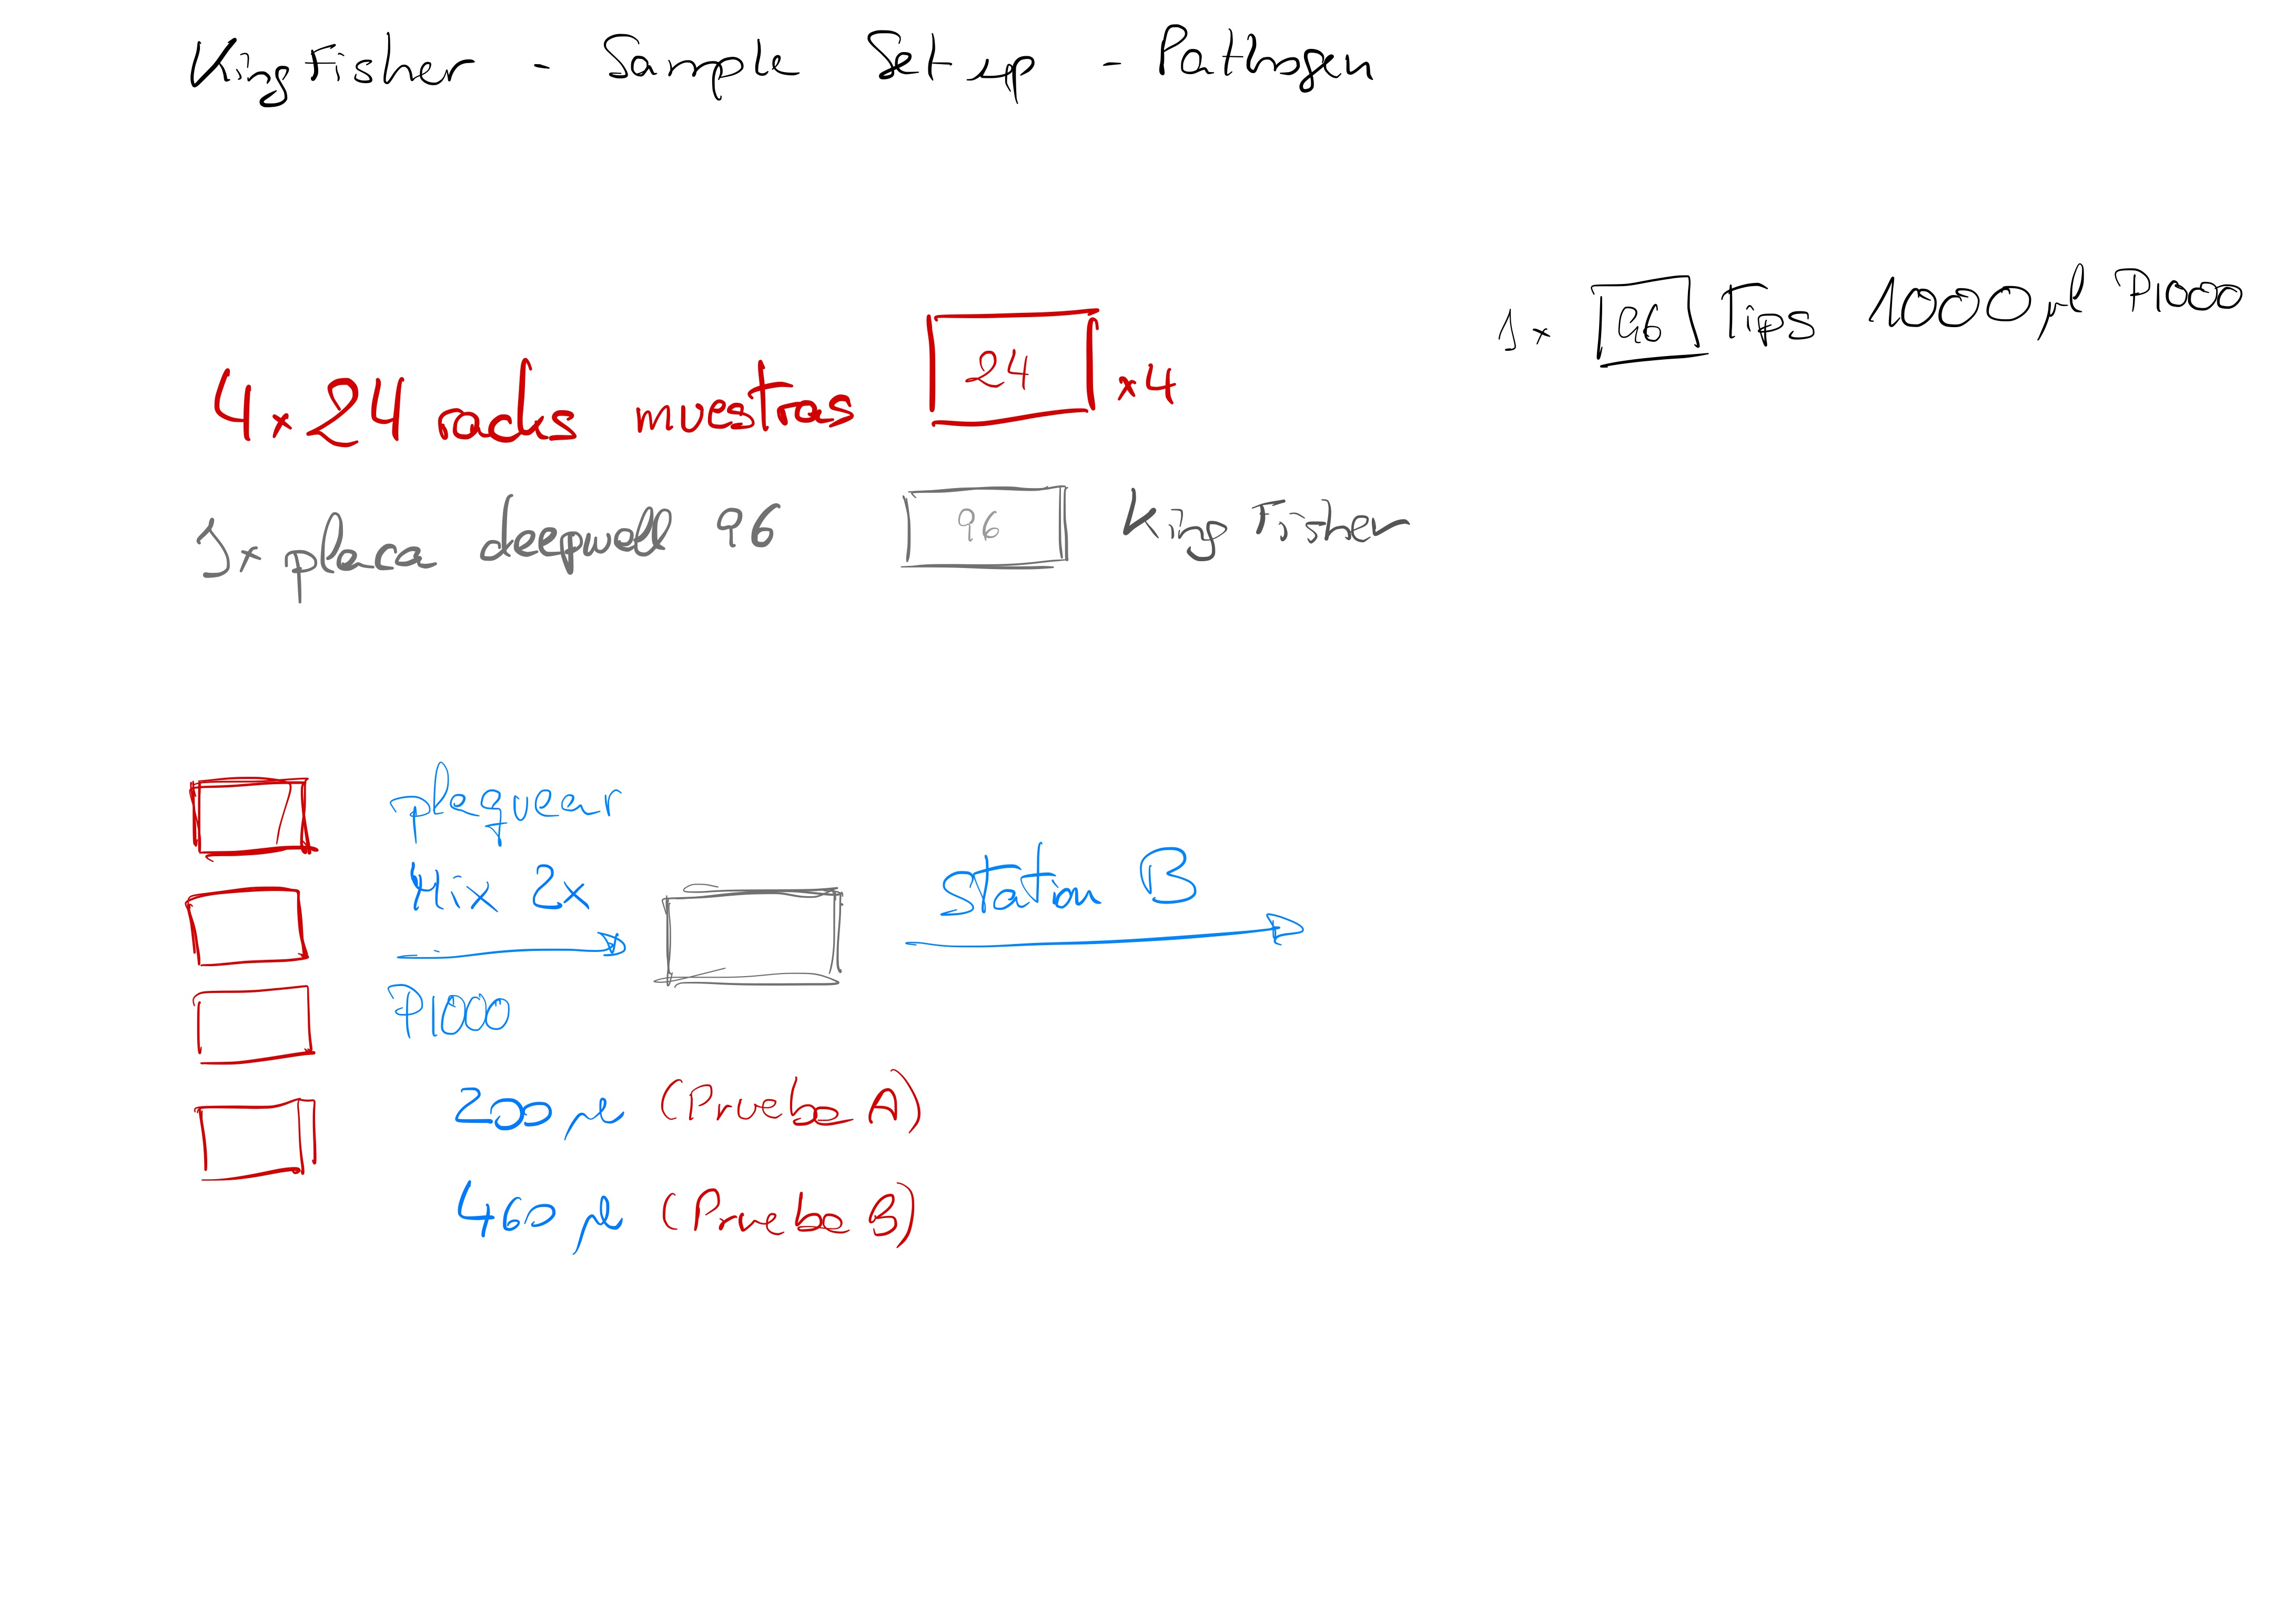 KingFisher - Sample Set up - Pathogen
1x 96 Tips 1000µl P1000
4x24 racks muestras 24 x4
1x placa deepwell 96 96 KingFisher
plaquear
Mix 2x
Station B
P1000
200µl (Prueba A)
460µl (Prueba B)